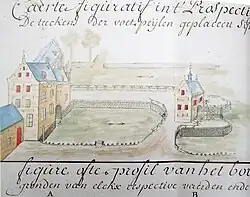 Caerte figuratif int Prospectu
De tuckens Der voetpeylen geplaceen
A B
figure ofte profil van het bo
gronden van elcke respective vaerden ende